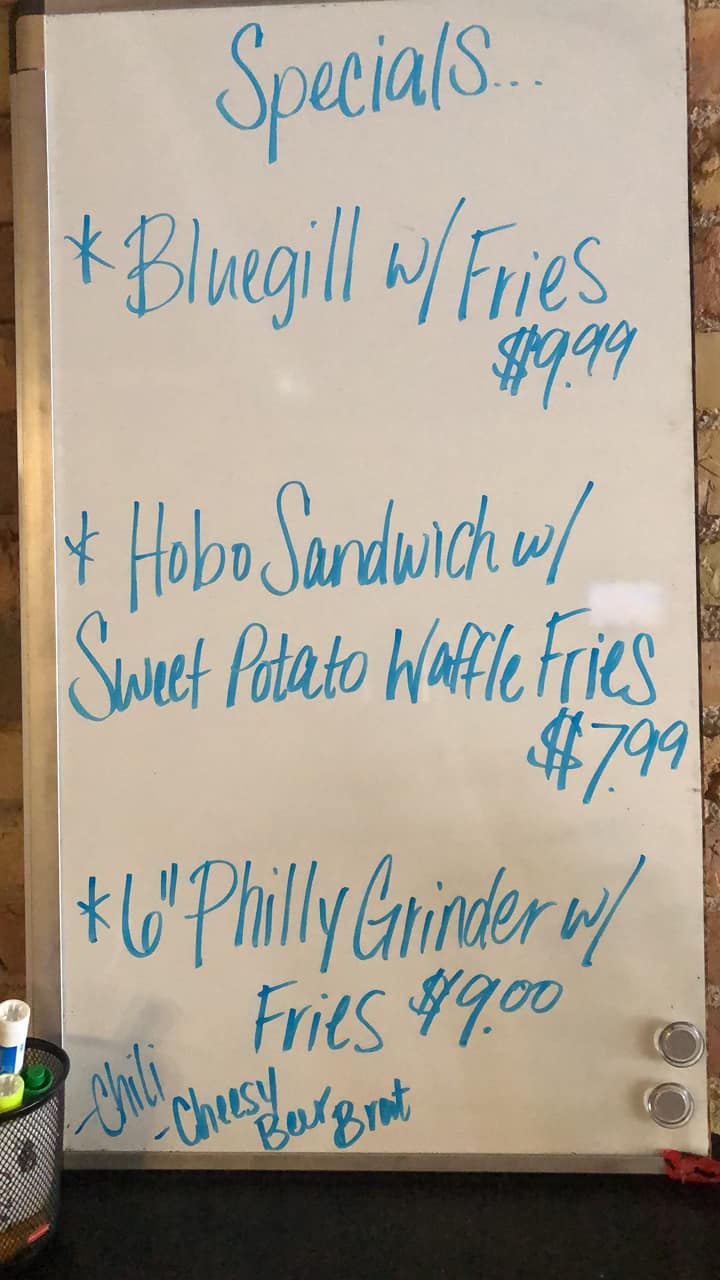 Specials...
* Bluegill w/ Fries
$9.99
* Hobo Sandwich w/
Sweet Potato Waffle Fries
$7.99
* 6" Philly Grinder w/
Fries $9.00
- Chili
- Cheesy
Beer Brat